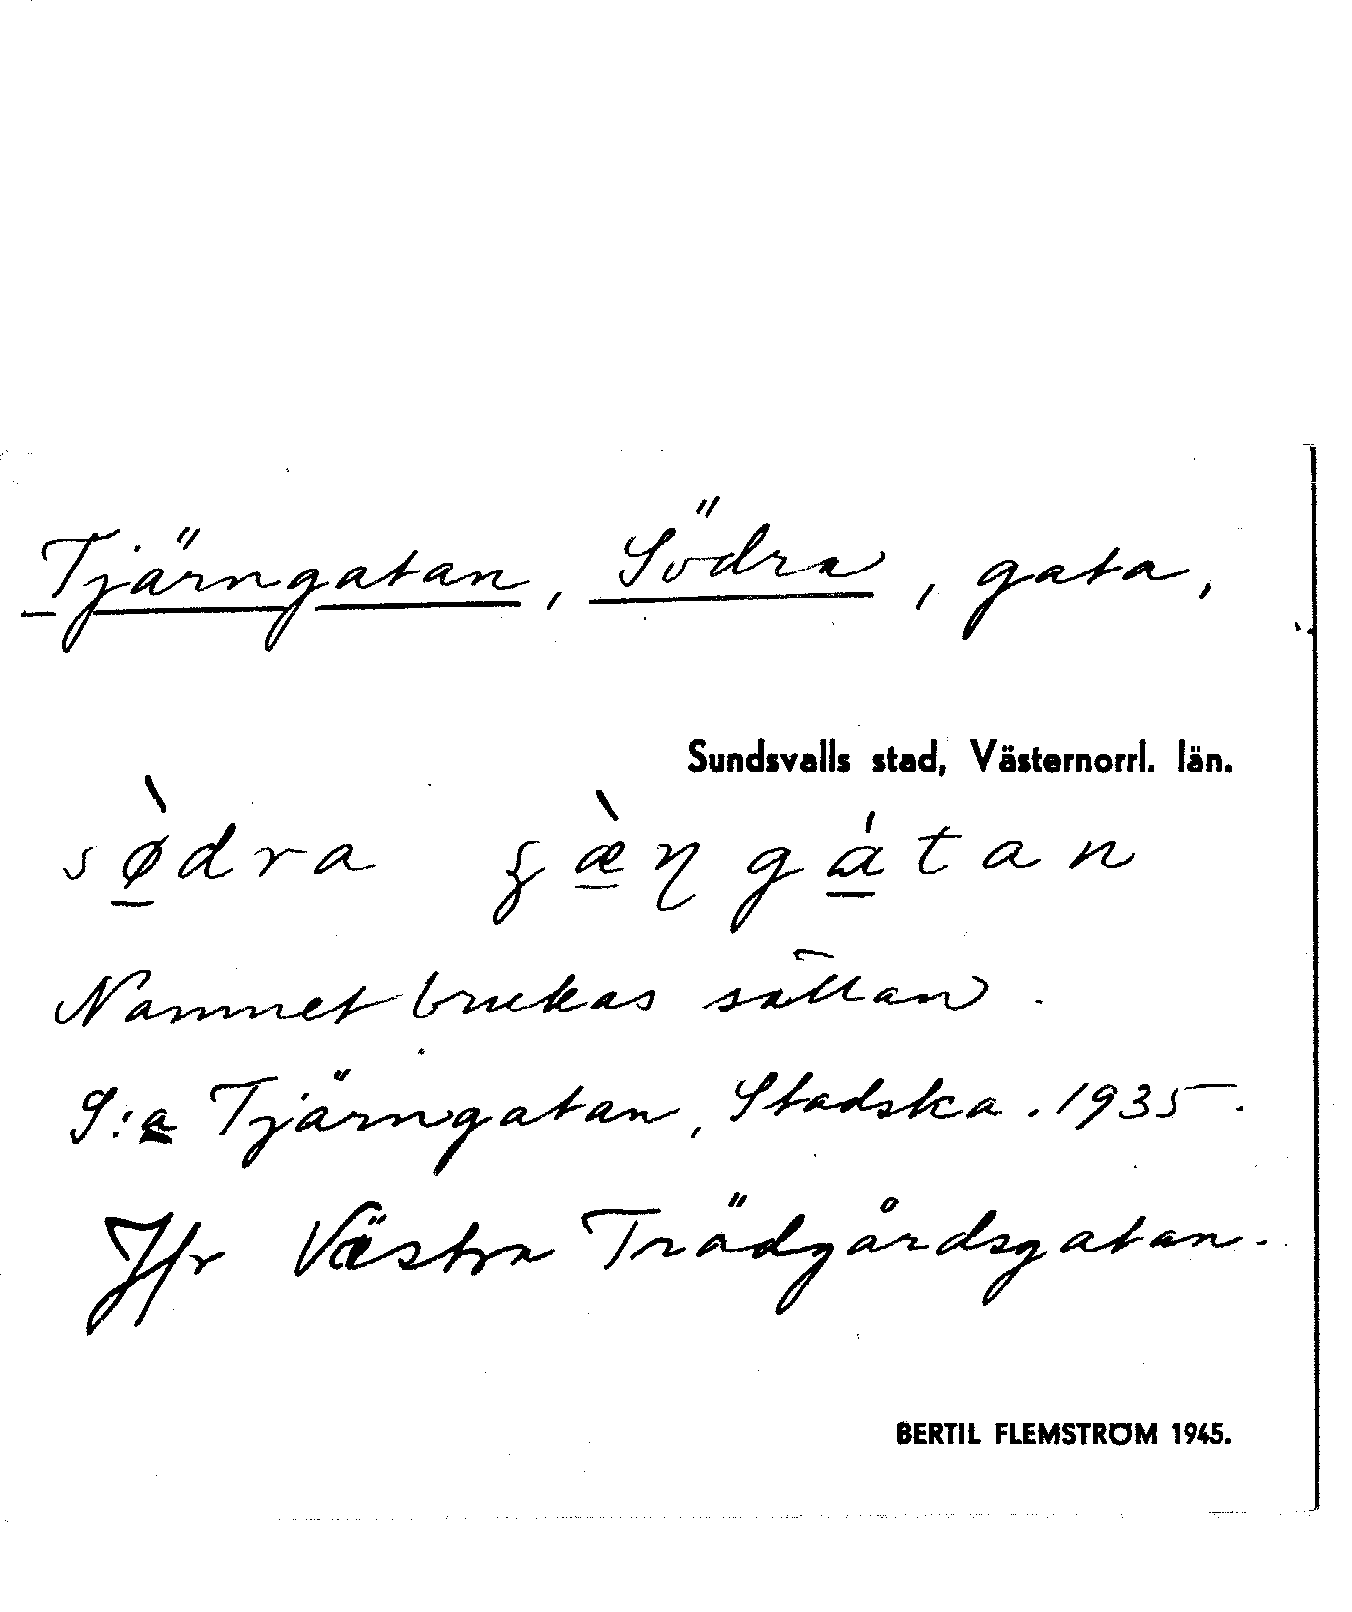 Tjärngatan, Södra, gata,
Sundsvalls stad, Västernorrl. län.
sø̀dra ʂæ̀ŋgátan
Namnet brukas sällan.
S:a Tjärngatan, Stadska. 1935.
Jfr Västra Trädgårdsgatan.
BERTIL FLEMSTRÖM 1945.